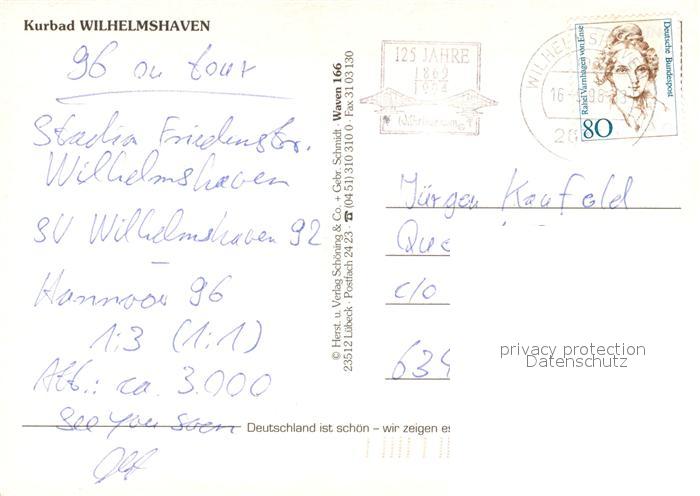 Kurbad WILHELMSHAVEN
96 on tour
Stadion Friedenstr.
Wilhelmshaven
SV Wilhelmshaven 92
-
Hannover 96
1:3 (1:1)
Att.: ca. 3.000
See you soon
© Herst. u. Verlag Schöning & Co. + Gebr. Schmidt · Waven 166
23512 Lübeck · Postfach 24 23 · ☎ (04 51) 310 310 0 · Fax 31 03 130
125 JAHRE
1869
1994
WILHELMSHA
16
Deutsche Bundespost
Rahel Varnhagen von Ense
80
Jürgen Kaufold
Que
c/o
634
privacy protection
Datenschutz
Deutschland ist schön – wir zeigen es